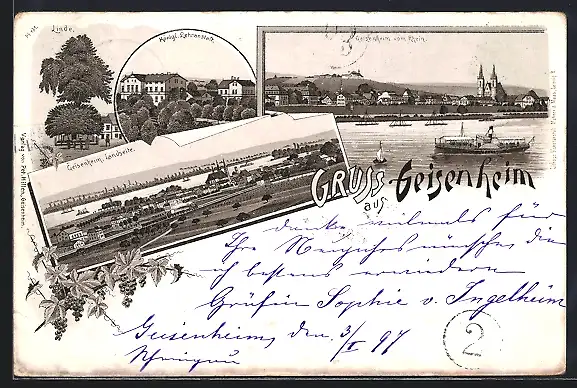 Linde.
Königl. Lehranstalt.
Geisenheim vom Rhein.
Geisenheim, Landseite.
Verlag von Pet. Hillen, Geisenheim.
Gruss aus Geisenheim
danke vielmals für
Ihre Neujahrswünsche, die
ich bestens erwidere
Gräfin Sophie v. Ingelheim
Geisenheim, den 3/I 97
Rheingau
2